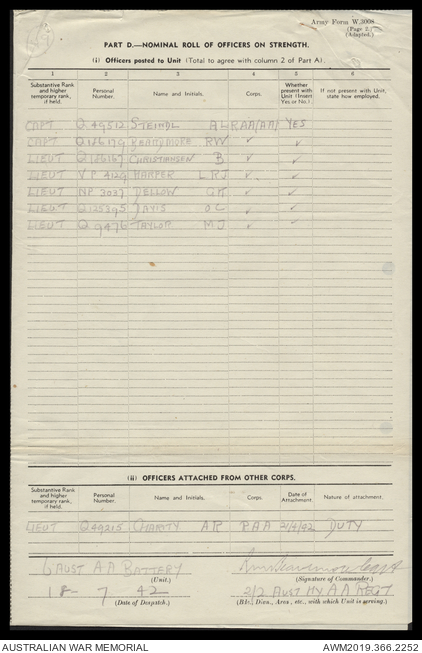 Army Form W.3008
(Page 2.)
(Adapted.)
PART D.—NOMINAL ROLL OF OFFICERS ON STRENGTH.
(i) Officers posted to Unit (Total to agree with column 2 of Part A).
1 2 3 4 5 6
Substantive Rank and higher temporary rank, if held. Personal Number. Name and Initials. Corps. Whether present with Unit (Insert Yes or No.) If not present with Unit, state how employed.
CAPT Q 49512 STEINDL A L RAA(AA) YES
CAPT RW ✓ ✓
LIEUT CHRISTIANSEN B ✓ ✓
LIEUT VP 4129 HARPER L R J ✓ ✓
LIEUT NP 3037 DELLOW GH ✓ ✓
LIEUT Q125395 O C ✓ ✓
LIEUT Q 9476 TAYLOR M J ✓
(ii) OFFICERS ATTACHED FROM OTHER CORPS.
Substantive Rank and higher temporary rank, if held. Personal Number. Name and Initials. Corps. Date of Attachment. Nature of attachment.
LIEUT Q49215 CHARITY AR RAA 21/4/42 DUTY
6 AUST AA BATTERY
(Unit.) (Signature of Commander.)
18 - 7 42 2/2 AUST HY AA REGT
(Date of Despatch.) (Bde., Divn., Area, etc., with which Unit is serving.)
AUSTRALIAN WAR MEMORIAL AWM2019.366.2252